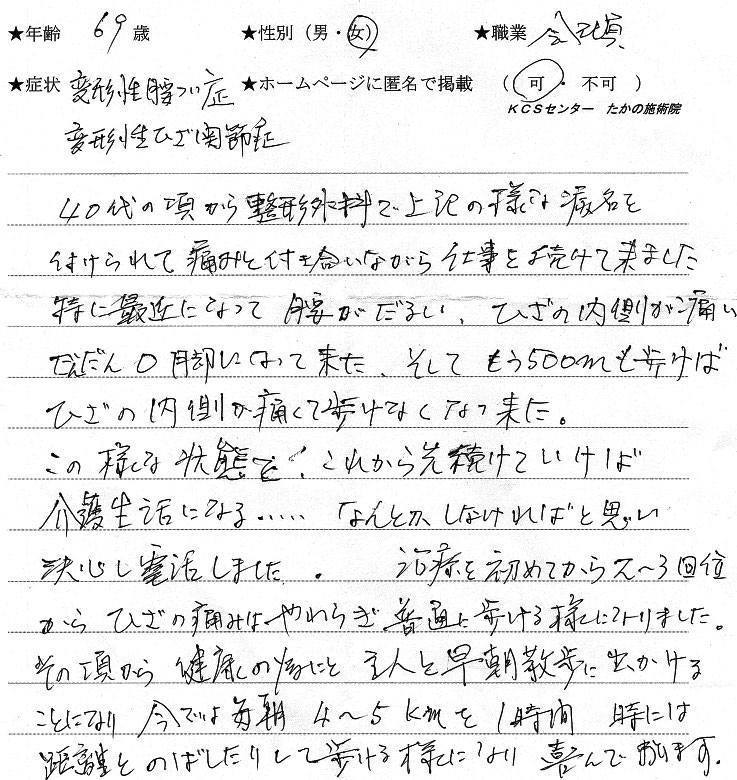 ★年齢 69 歳 ★性別（男・女） ★職業 会社員
★症状 変形性腰つい症 ★ホームページに匿名で掲載 （ 可 ・ 不可 ）
KCSセンター たかの施術院
変形性ひざ関節症
40代の頃から整形外科で上記の様な病名を
付けられて痛みと付き合いながら仕事を続けて来ました
特に最近になって腰がだるい、ひざの内側が痛い
だんだんO脚になって来た、そしてもう500mも歩けば
ひざの内側が痛くて歩けなくなって来た。
この様な状態で、これから先続けていけば
介護生活になる…… なんとかしなければと思い
決心し電話しました。 治療を初めてから2〜3回位
からひざの痛みはやわらぎ普通に歩ける様になりました。
その頃から健康の為にと主人と早朝散歩に出かける
ことになり今では毎朝4〜5kmを1時間 時には
距離をのばしたりして歩ける様になり喜んでおります。